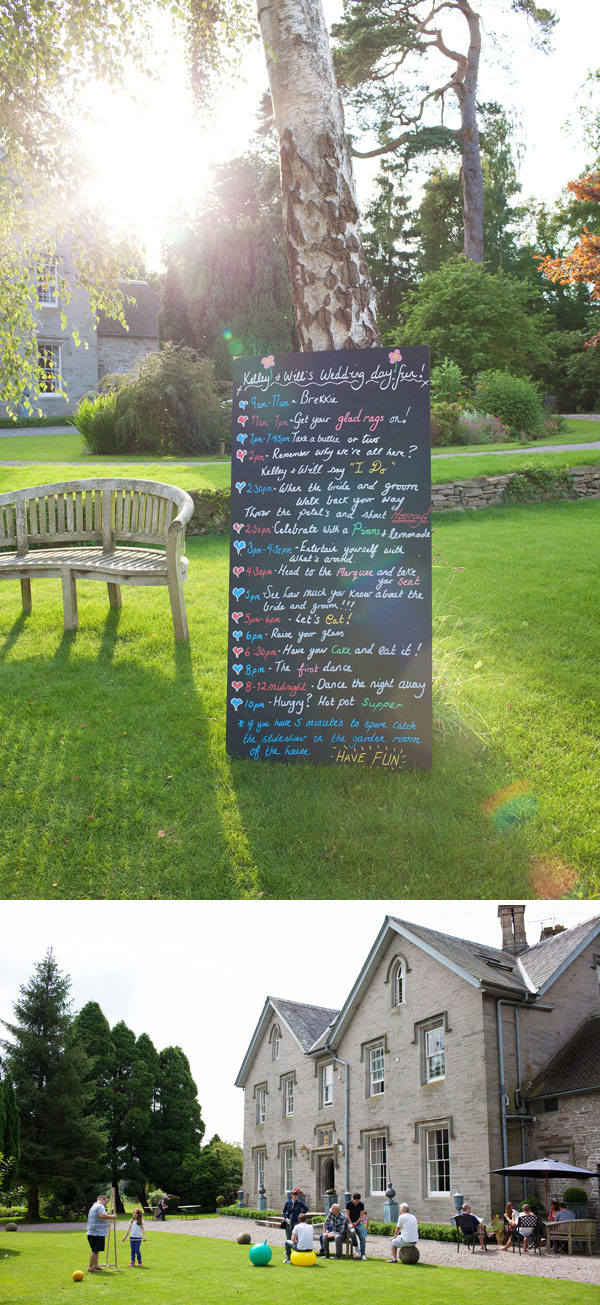 Kelley + Will's Wedding day fun!
9am-11am - Brekkie
11am-1pm - Get your glad rags on!
1pm-1·45pm Take a buttie or two
2pm - Remember why we're all here?
Kelley + Will say "I Do"
2:30pm - When the bride and groom
Walk back your way
Throw the petal's and shout Hooray!
2:30pm - Celebrate with a Pimms + lemonade
3pm - 4:30pm - Entertain yourself with
What's around.
4:30pm - Head to the Marquee and take
yor Seat
5pm See how much you know about the
bride and groom!!!
5pm-6pm - Let's Eat!
6pm - Raise your glass
6:30pm - Have your Cake and eat it!
8pm - The first dance
8-12 midnight - Dance the night away
10pm - Hungry? Hot pot supper
* if you have 5 minute's to spare catch
the slideshow in the garden room
of the house
- HAVE FUN -